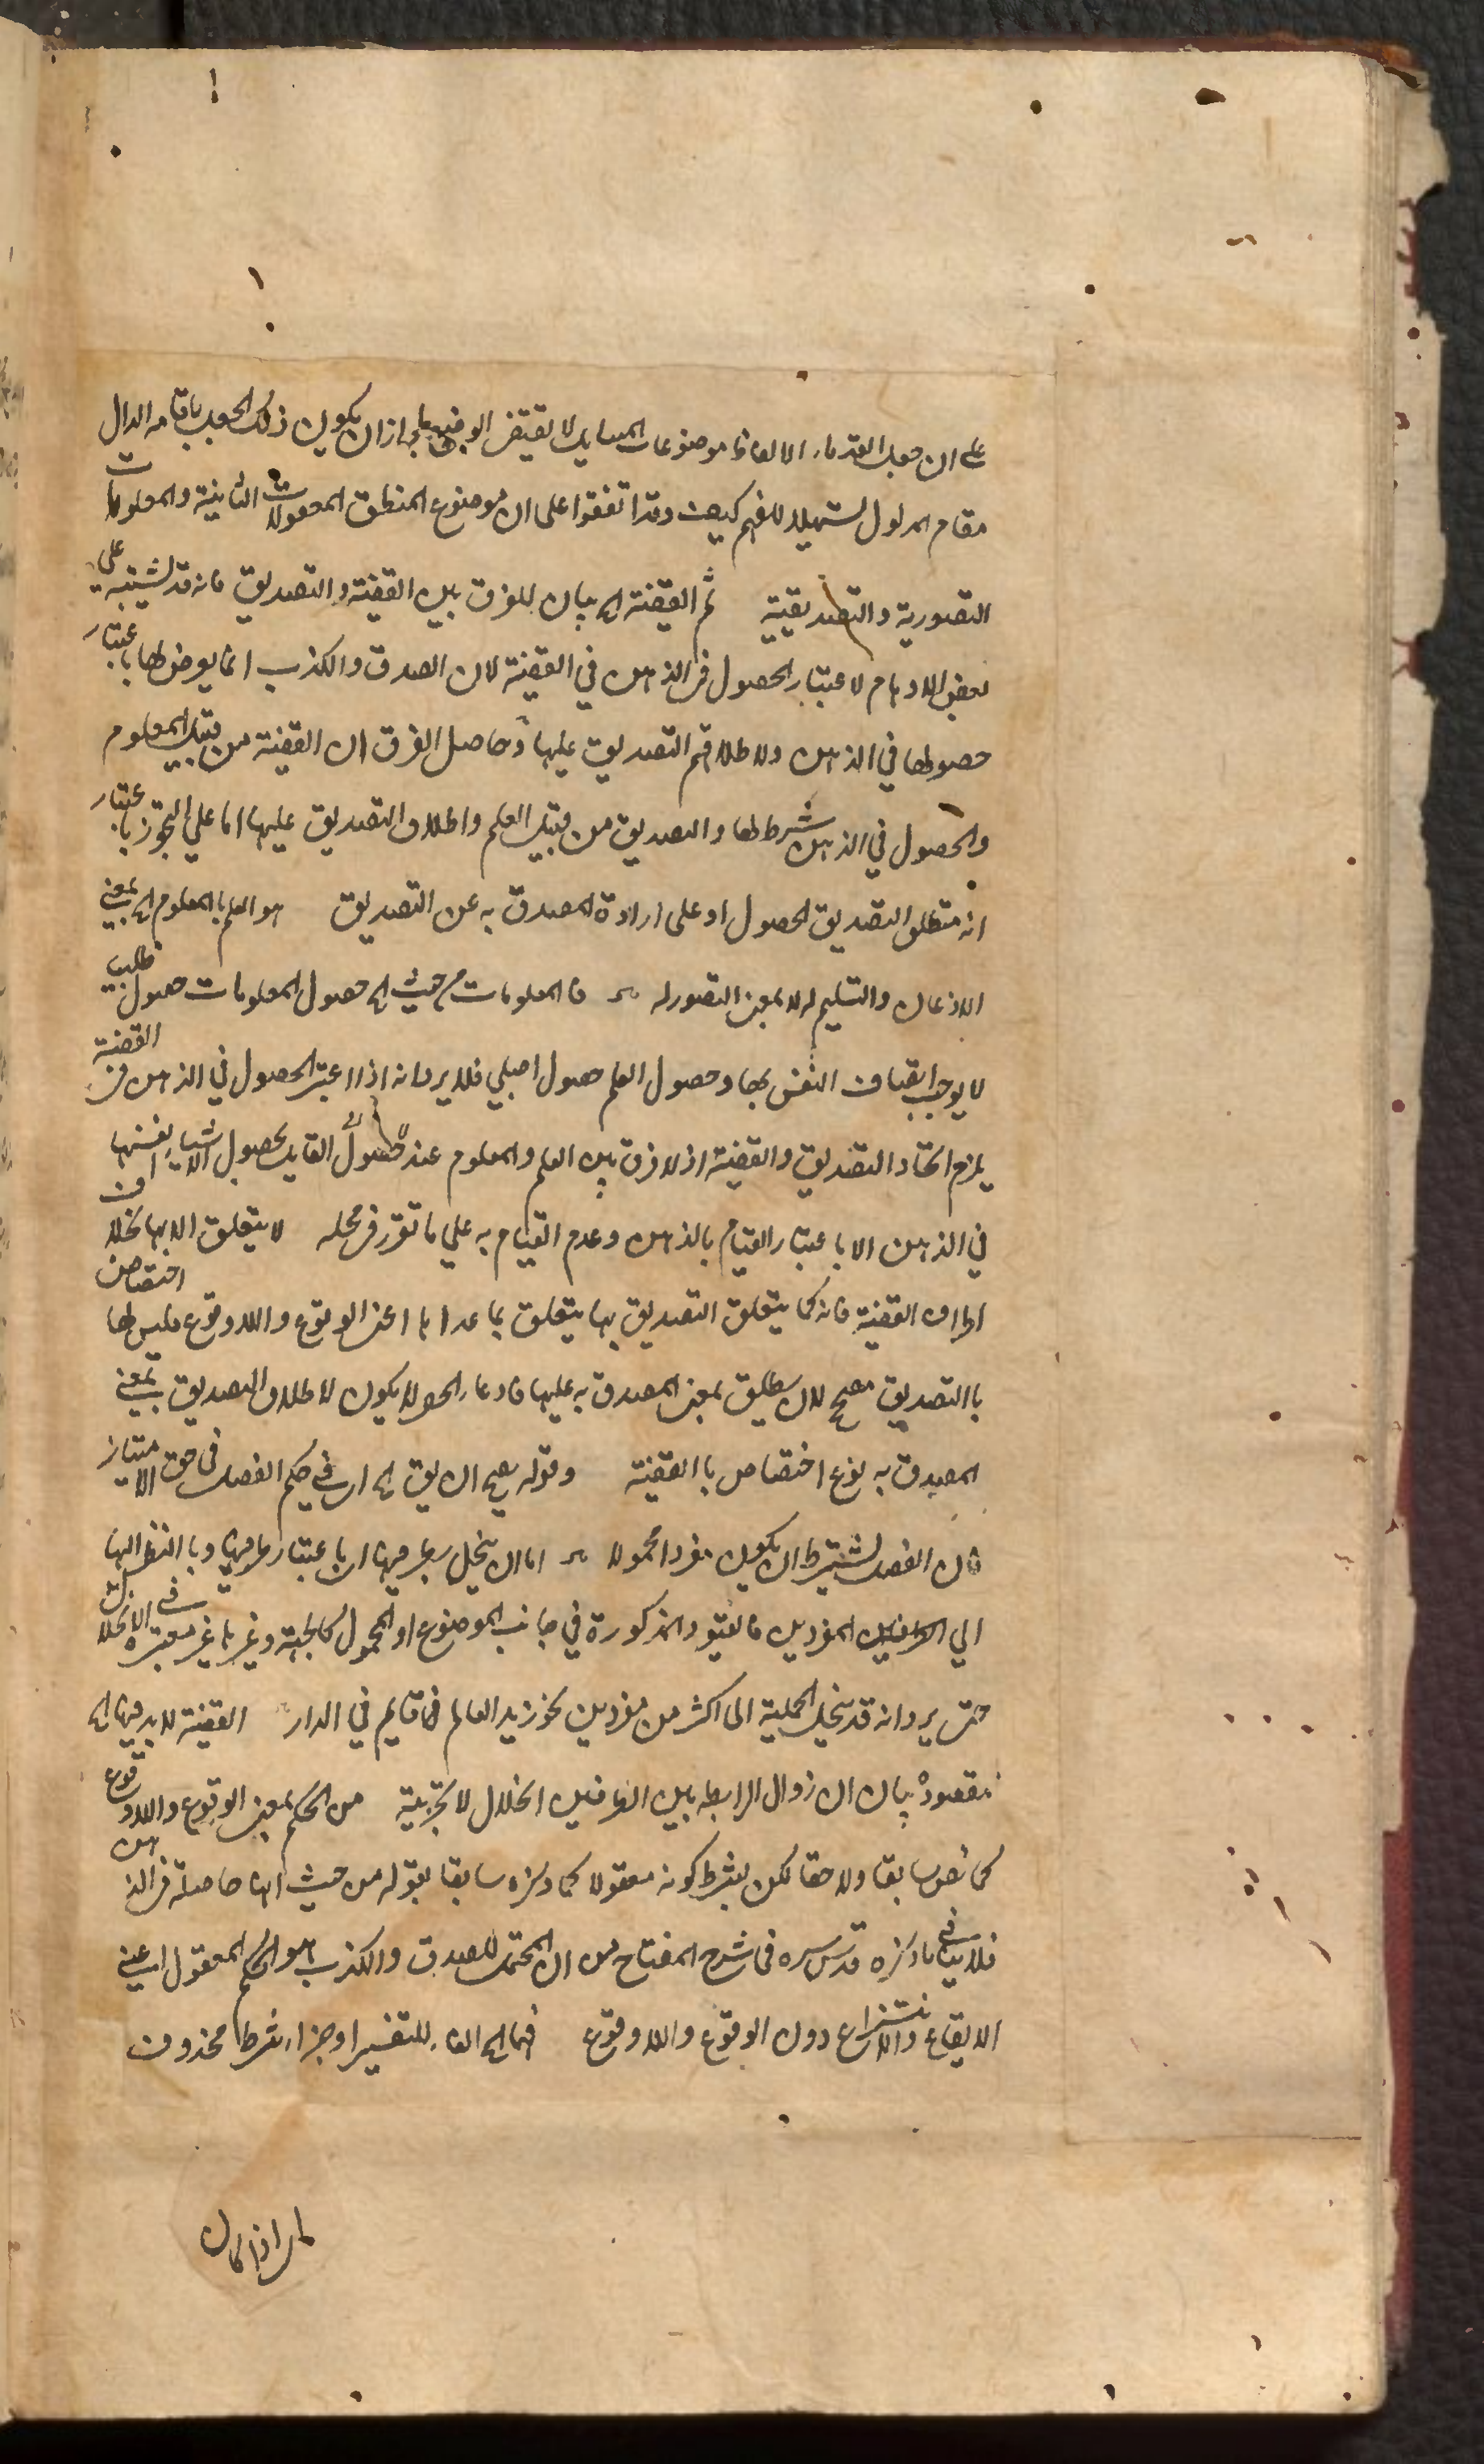 على ان جعل القدماء الالفاظ موضوعات المسايل لا يقتضى الوضع لها لجواز ان يكون ذلك الجعل باقامة الدال
مقام المدلول تسهيلا للفهم كيف وقد اتفقوا على ان موضوع المنطق المعقولات الثانية والمعلومات
التصورية والتصديقية ثم القضية الخ بيان للفرق بين القضية والتصديق فانه قد يشتبه على
بعض الاوهام لاعتبار الحصول فى الذهن في القضية لان الصدق والكذب انما يعرض لها باعتبار
حصولها في الذهن ولاطلاقهم التصديق عليها وحاصل الفرق ان القضية من قبيل المعلوم
والحصول في الذهن شرط لها والتصديق من قبيل العلم واطلاق التصديق عليها اما على التجوز باعتبار
انه متعلق التصديق الحصول او على ارادة المصدق به عن التصديق هو العلم بالمعلوم الخ بمعنى
الاذعان والتسليم له لا بمعنى التصور له فالمعلومات من حيث الخ حصول المعلومات حصول ظلي
لا يوجب اتصاف النفس بها وحصول العلم حصول اصيلي فلا يرد انه اذا اعتبر الحصول في الذهن فى القضية
يلزم اتحاد التصديق والقضية اذ لا فرق بين العلم والمعلوم عند القايل بحصول الاشياء بانفسها
في الذهن الا باعتبار القيام بالذهن وعدم القيام به على ما تقرر فى محله لا يتعلق الا بها بخلاف
اطراف القضية فانه كما يتعلق التصديق بها يتعلق بما عداها اعنى الوقوع واللاوقوع فليس لها اختصاص
باالتصديق مصحح لان يطلق بمعنى المصدق به عليها فادعاء الحصر لا يكون لاطلاق التصديق بمعنى
المصدق به نوع اختصاص باالقضية وقوله يصح ان يق الخ اى فى حكم الفصل فى حق الامتياز
فان الفصل يشترط ان يكون مفردا محمولا اما ان ينحل بطرفيها اى باعتبار طرفيها وباالنظر اليها
الي الطرفين المفردين فالقيود المذكورة في جانب الموضوع او المحمول كالجهة وغيرها غير معتبرة فى الانحلال
حتى يرد انه قد ينحل الحملية الى اكثر من مفردين نحو زيد العالم قايم في الدار القضية لا بد فيها الخ
مقصوده بيان ان زوال الرابطة بين الطرفين انحلال لا تجزية من الحكم بمعنى الوقوع واللاوقوع
كما نص سابقا ولاحقا لكن بشرط كونه معقولا كما ذكره سابقا بقوله من حيث انها حاصلة فى الذهن
فلا ينافى ما ذكره قدس سره فى شرح المفتاح من ان المحتمل للصدق والكذب هو الحكم المعقول اعنى
الايقاع والانتزاع دون الوقوع واللاوقوع فهما الخ الفاء للتفسير او جزاء شرط محذوف
اذا كان